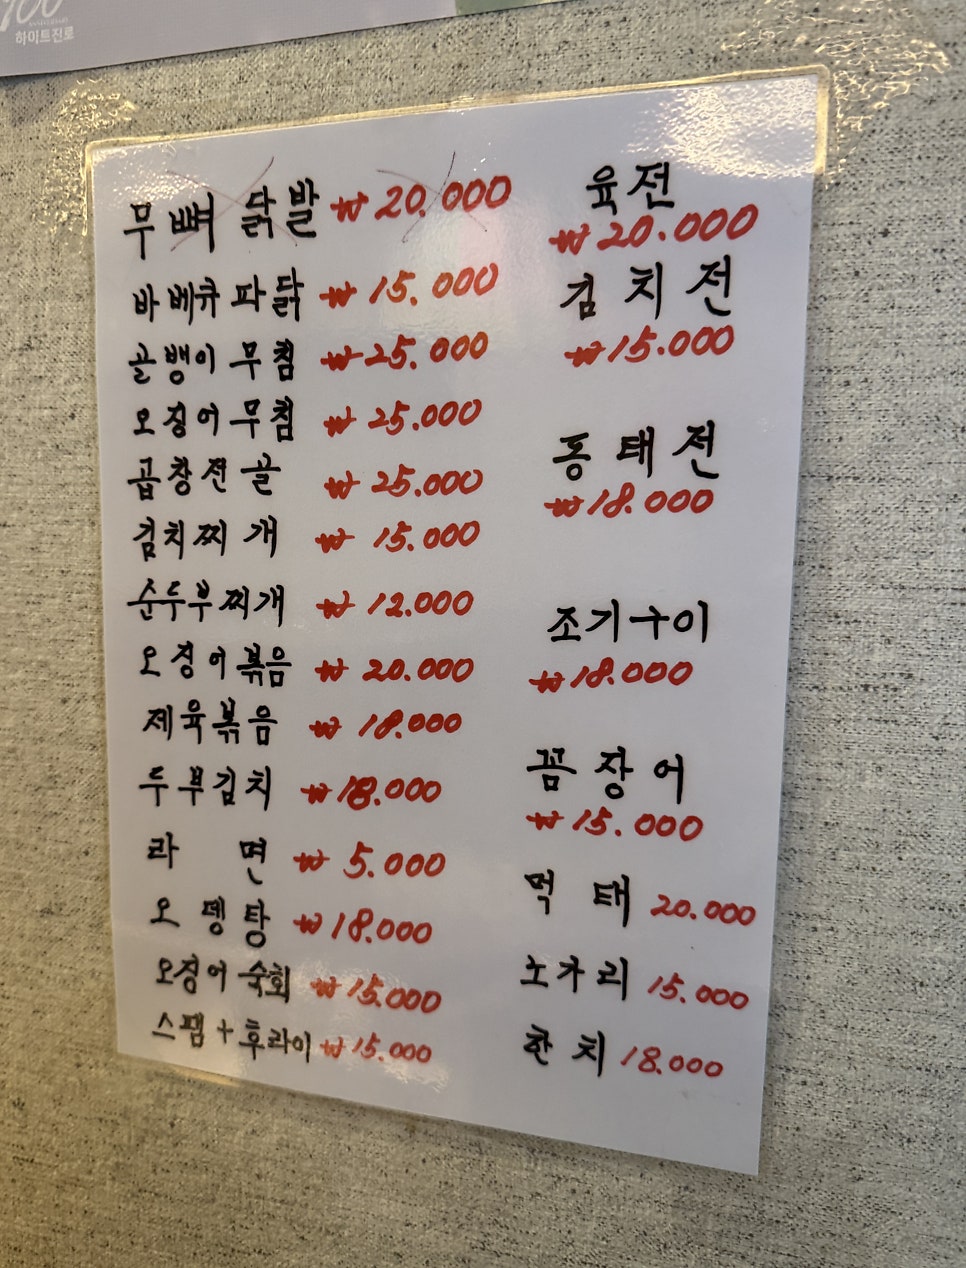 100
ANNIVERSARY
하이트진로
무뼈 닭발 ₩20.000
바베큐파닭 ₩15.000
골뱅이 무침 ₩25.000
오징어무침 ₩25.000
곱창전골 ₩25.000
김치찌개 ₩15.000
순두부찌개 ₩12.000
오징어볶음 ₩20.000
제육볶음 ₩18.000
두부김치 ₩18.000
라면 ₩5.000
오뎅탕 ₩18.000
오징어숙회 ₩15.000
스팸+후라이 ₩15.000
육전
₩20.000
김치전
₩15.000
동태전
₩18.000
조기구이
₩18.000
꼼장어
₩15.000
먹태 20.000
노가리 15.000
한치 18.000